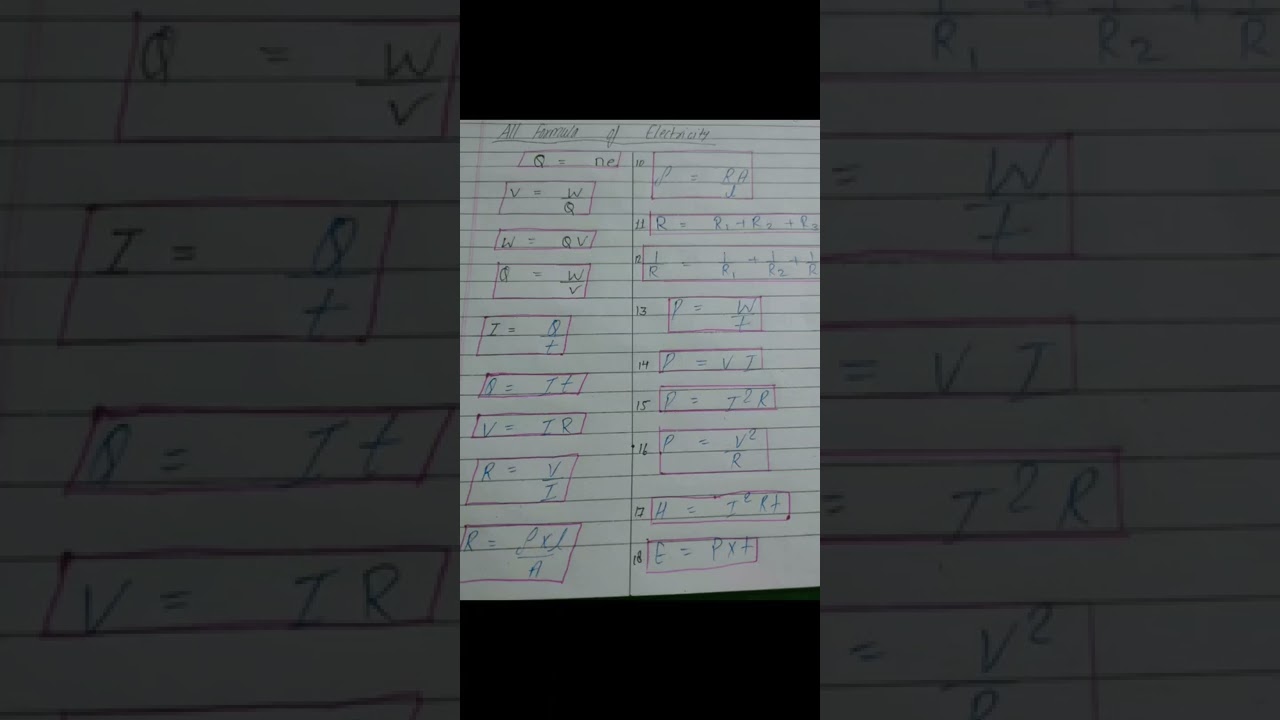 All Formula of Electricity
Q = ne
V = W/Q
W = QV
Q = W/V
I = Q/t
Q = It
V = IR
R = V/I
R = ρxl/A
10 ρ = RA/l
11 R = R₁ + R₂ + R₃
12 1/R = 1/R₁ + 1/R₂ + 1/R
13 P = W/t
14 P = VI
15 P = I²R
16 P = V²/R
17 H = I²Rt
18 E = Pxt